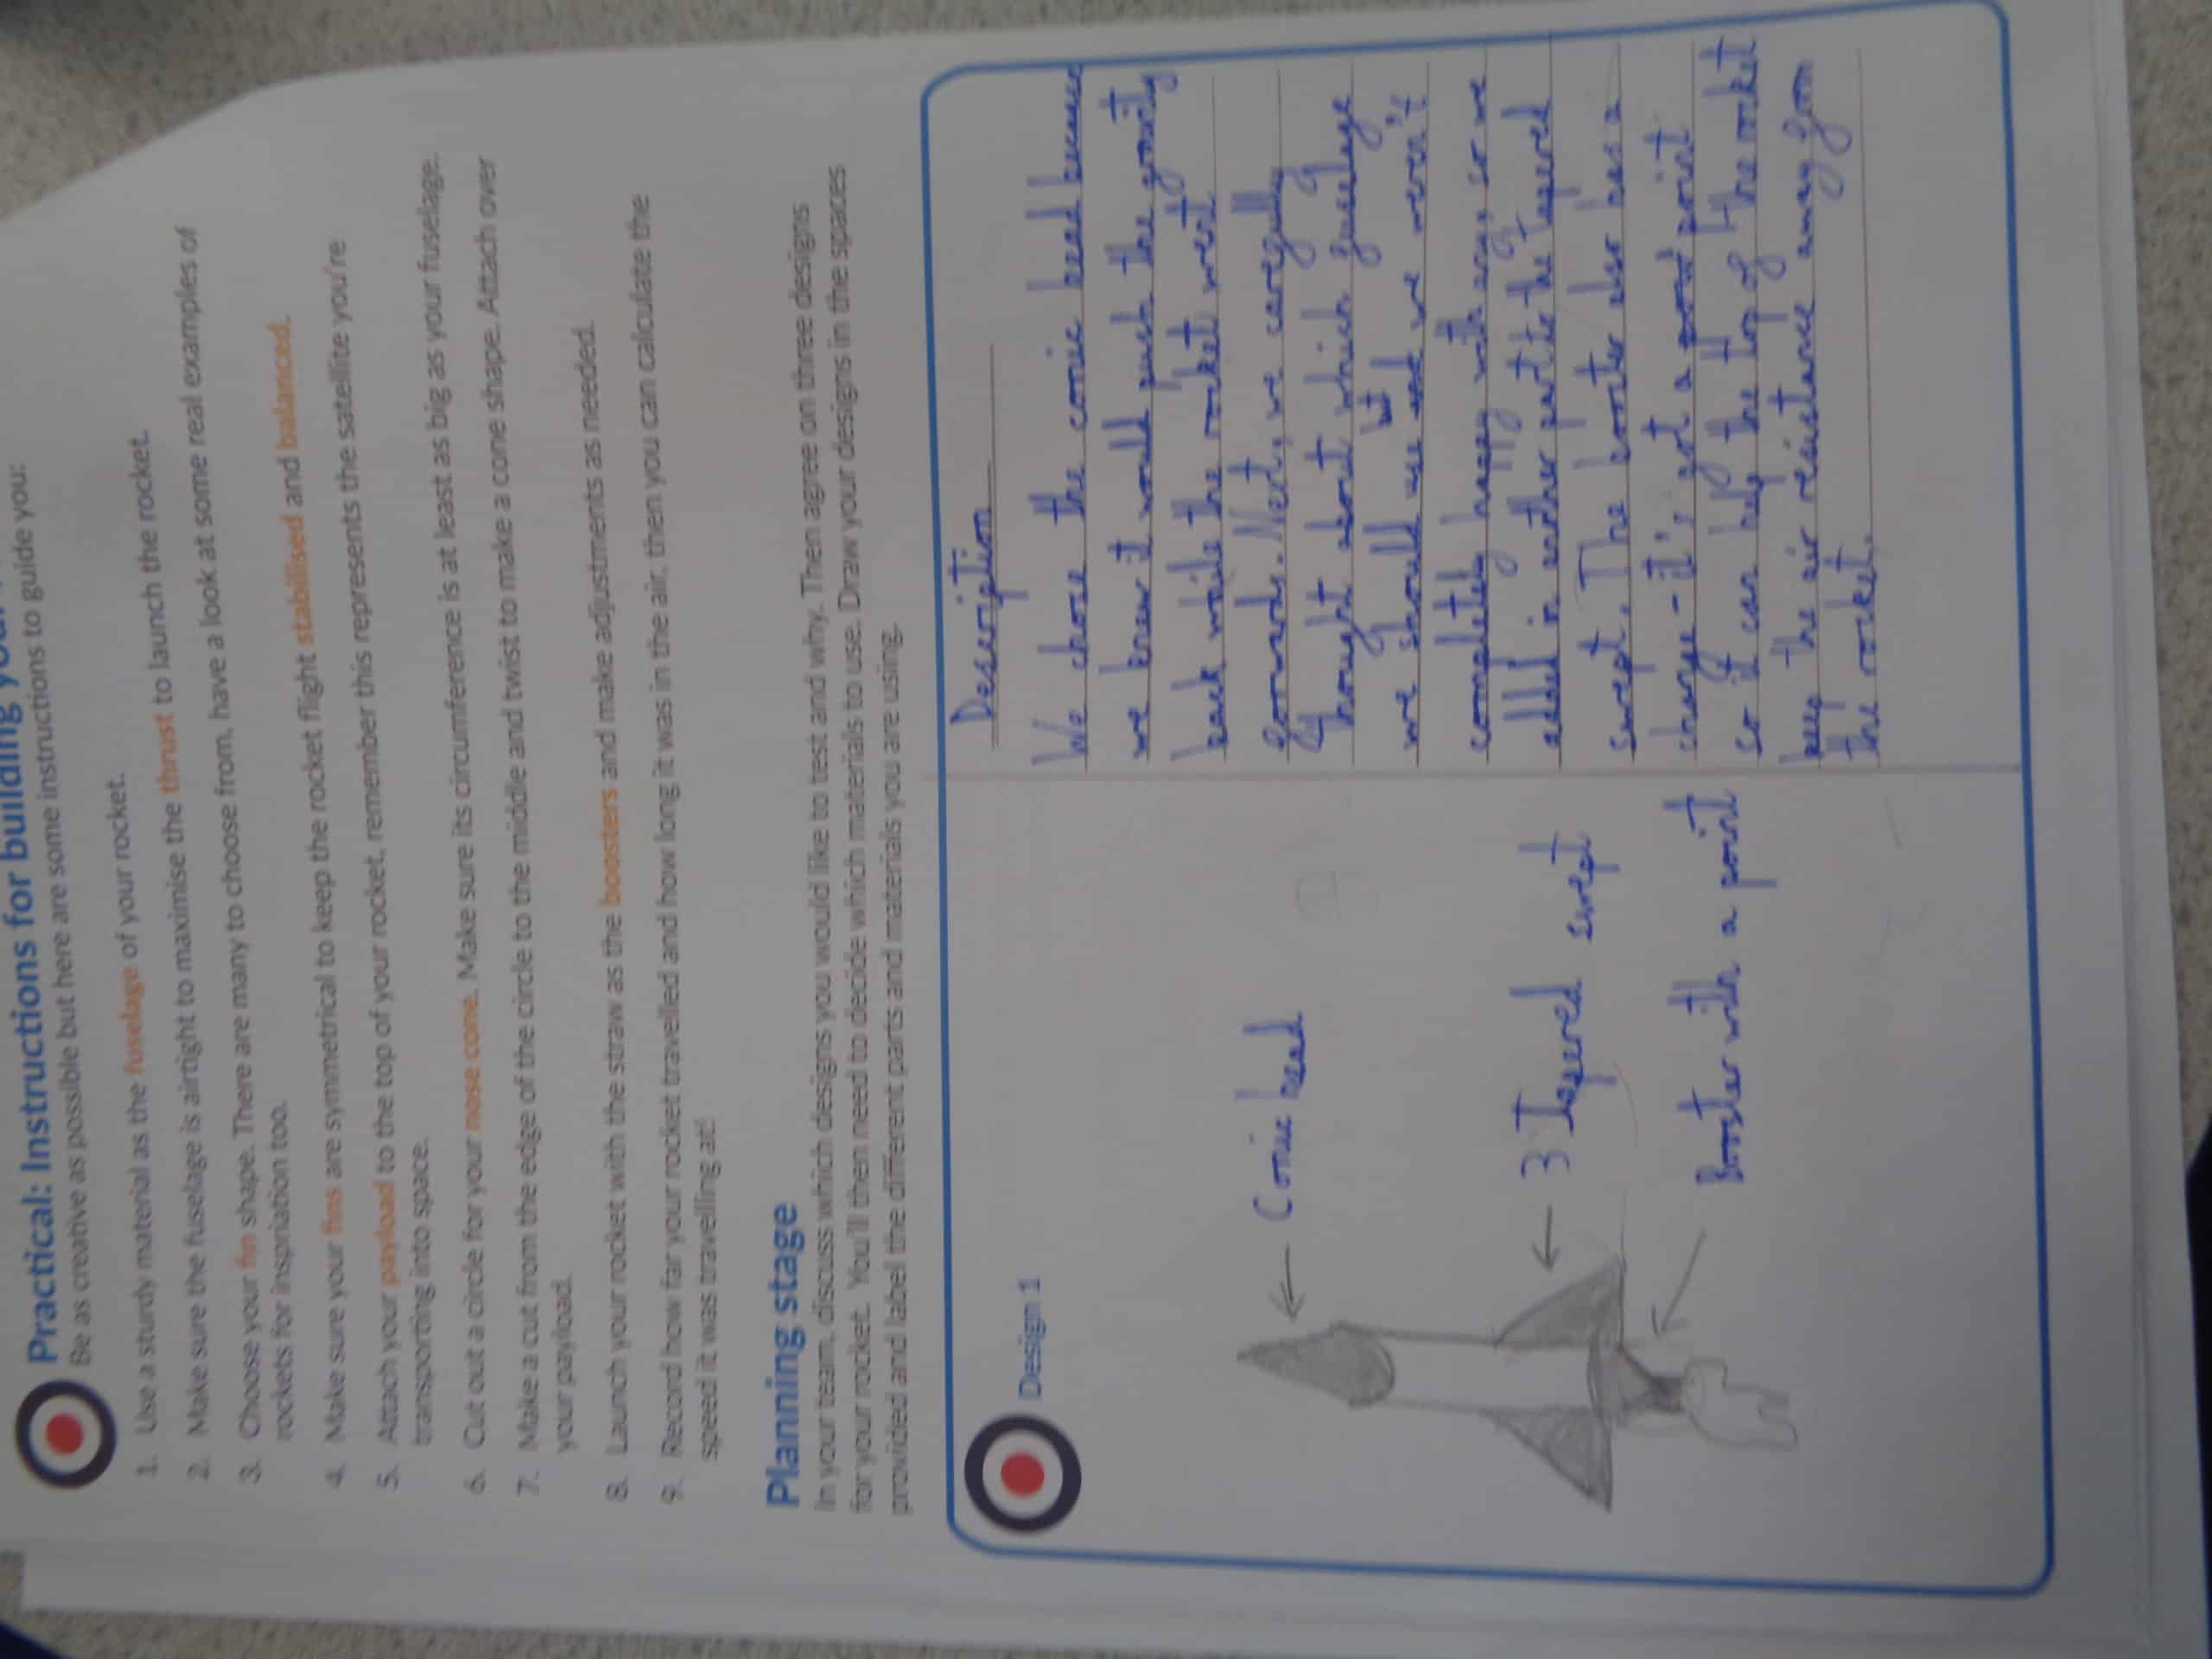 Practical: Instructions for building
Be as creative as possible but here are some instructions to guide you:
1. Use a sturdy material as the fuselage of your rocket.
2. Make sure the fuselage is airtight to maximise the thrust to launch the rocket.
3. Choose your fin shape. There are many to choose from, have a look at some real examples of
rockets for inspriation too.
4. Make sure your fins are symmetrical to keep the rocket flight stabilised and balanced.
5. Attach your payload to the top of your rocket, remember this represents the satellite you're
transporting into space.
6. Cut out a circle for your nose cone. Make sure its circumference is at least as big as your fuselage.
7. Make a cut from the edge of the circle to the middle and twist to make a cone shape. Attach over
your payload.
8. Launch your rocket with the straw as the boosters and make adjustments as needed.
9. Record how far your rocket travelled and how long it was in the air, then you can calculate the
speed it was travelling at!
Planning stage
In your team, discuss which designs you would like to test and why. Then agree on three designs
for your rocket. You'll then need to decide which materials to use. Draw your designs in the spaces
provided and label the different parts and materials you are using.
Design 1
Conic head
3 Tapered swept
Booster with a point
Description
We chose the conic head because
we knew it would push the gravity
back while the rocket went
forwards. Next, we carefully
thought about which fuselage
we should use but we weren't
completely happy with any, so we
added in another part to the tapered
swept. The booster also has a
change - it's got a point
so it can help the top of the rocket
keep the air resistance away from
the rocket.